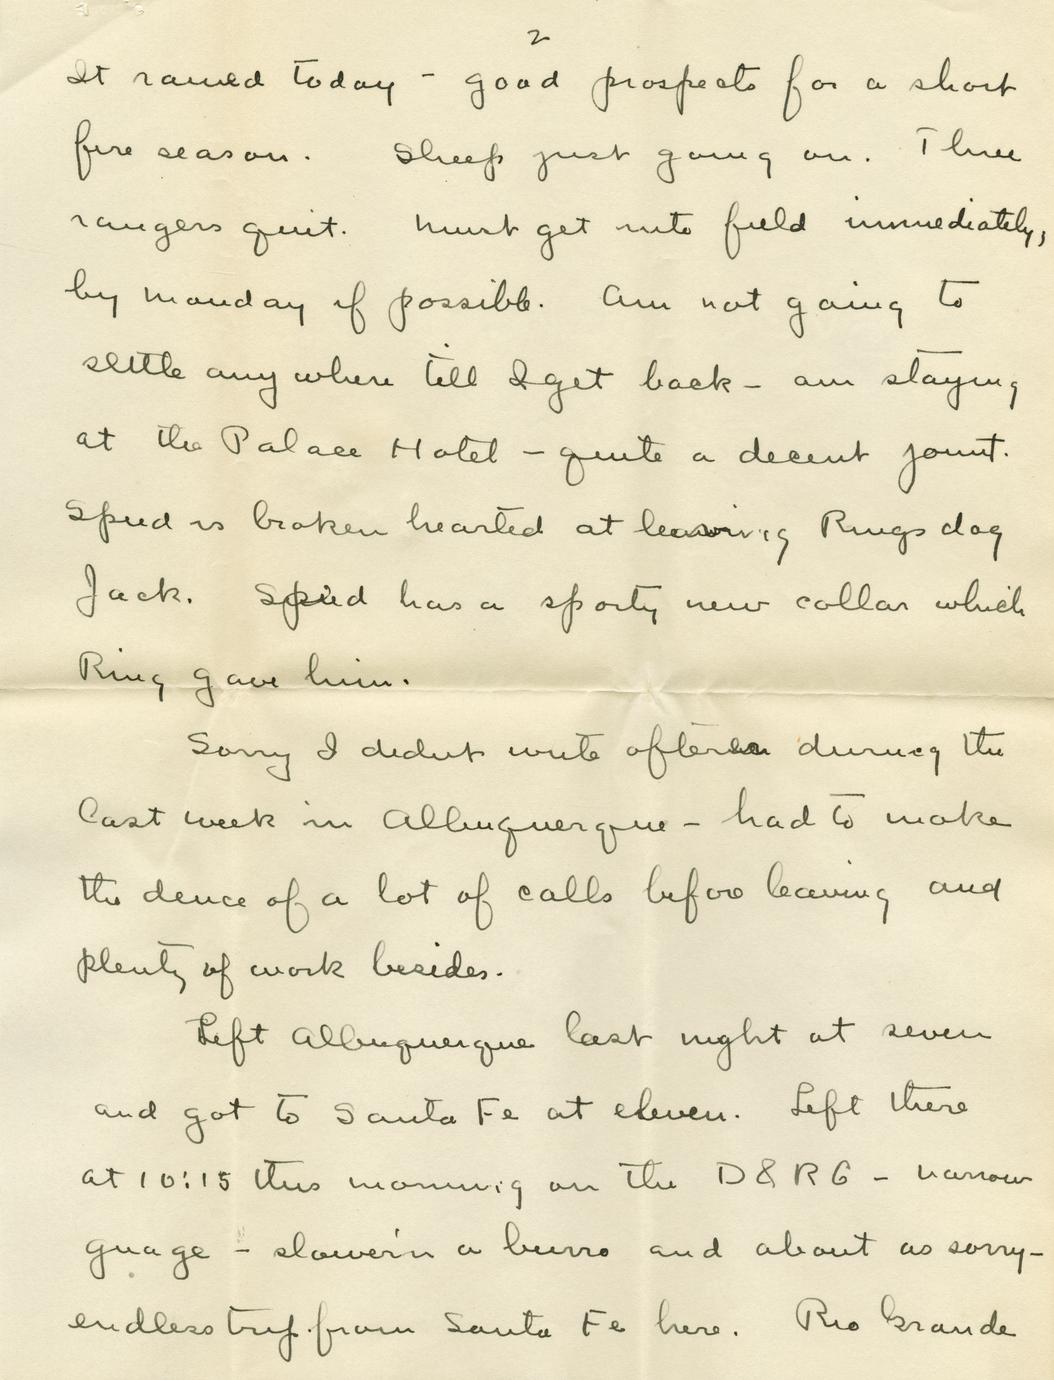 2
It rained today - good prospects for a short
fire season. Sheep just going on. Three
rangers quit. Must get into field immediately,
by Monday if possible. Am not going to
settle anywhere till I get back - am staying
at the Palace Hotel - quite a decent joint.
Spud is broken hearted at leaving Rings dog
Jack. Spud has a sporty new collar which
Ring gave him.
Sorry I didnt write oftener during the
last week in Albuquerque - had to make
the deuce of a lot of calls before leaving and
plenty of work besides.
Left Albuquerque last night at seven
and got to Santa Fe at eleven. Left there
at 10:15 this morning on the D & R G - narrow
guage - slower'n a burro and about as sorry -
endless trip from Santa Fe here. Rio Grande